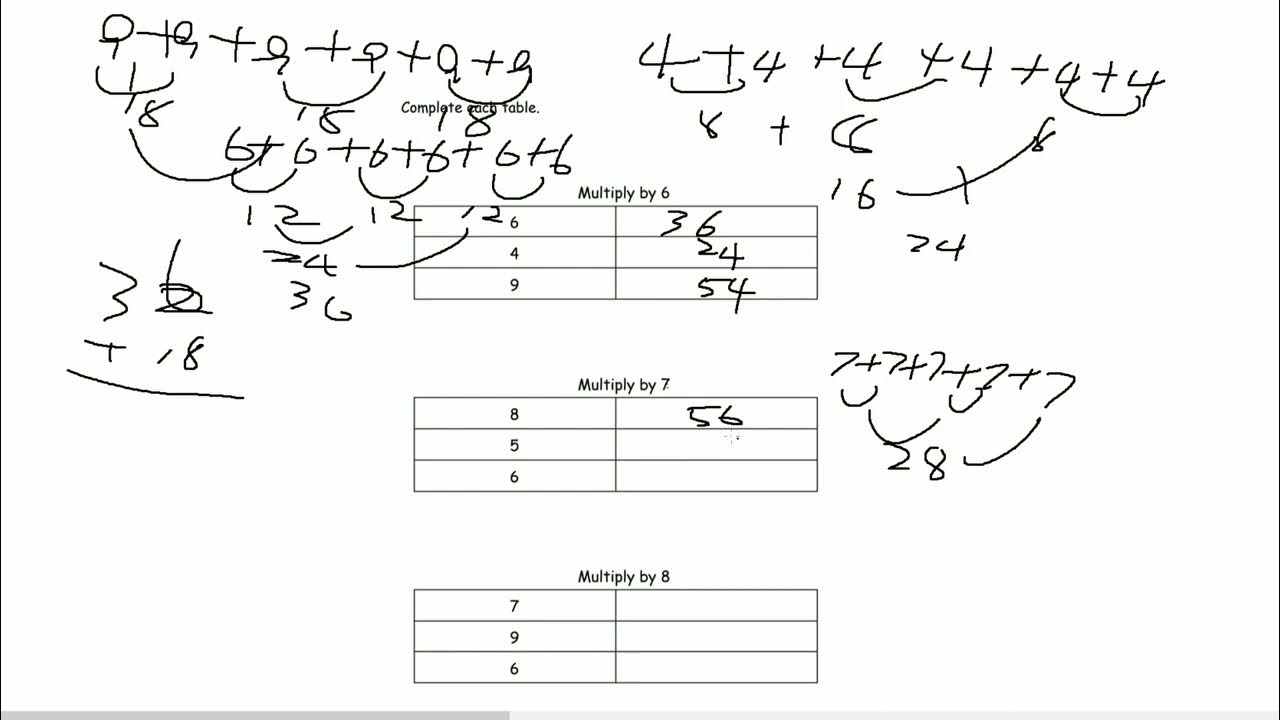 9+9+9+9+9+9
4+4+4+4+4+4
18 18 18
Complete each table.
8 + 8 8
6+6+6+6+6+6
16
12 12 12
24
24
36
Multiply by 6
6 36
4 24
9 54
36
+ 18
7+7+7+7+7
28
Multiply by 7
8 56
5
6
Multiply by 8
7
9
6